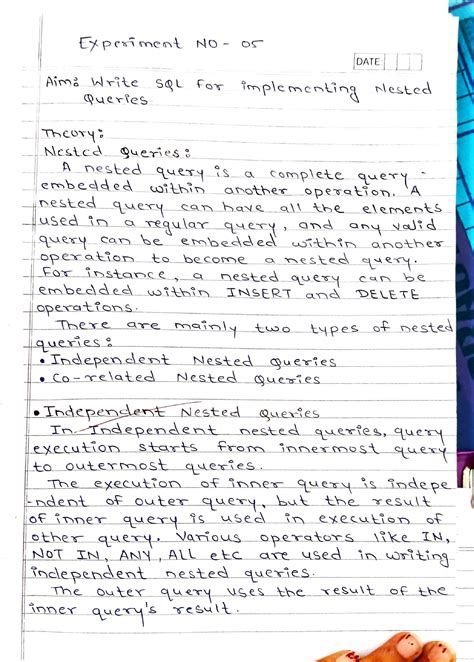 Experiment NO - 05
DATE
Aim: Write SQL for implementing Nested
Queries
Theory:
Nested Queries:
A nested query is a complete query -
embedded within another operation. A
nested query can have all the elements
used in a regular query, and any valid
query can be embedded within another
operation to become a nested query.
For instance, a nested query can be
embedded within INSERT and DELETE
operations.
There are mainly two types of nested
queries:
• Independent Nested Queries
• Co-related Nested Queries
• Independent Nested Queries
In Independent nested queries, query
execution starts from innermost query
to outermost queries.
The execution of inner query is indepe
-ndent of outer query, but the result
of inner query is used in execution of
other query. Various operators like IN,
NOT IN, ANY, ALL etc are used in writing
independent nested queries.
The outer query uses the result of the
inner query's result.